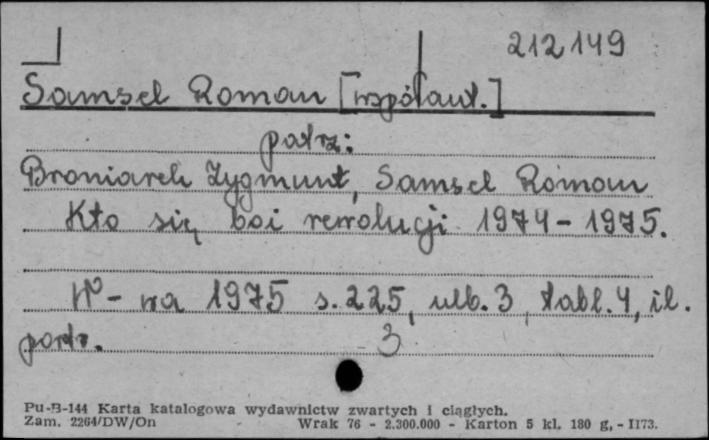 212149
Samsel Roman [współaut.]
patrz:
Broniarek Zygmunt, Samsel Roman
Kto się boi rewolucji 1974-1975.
W-wa 1975 s. 225, nlb. 3, tabl. 4, il.
portr. 3
Pu-B-144 Karta katalogowa wydawnictw zwartych i ciągłych.
Zam. 2264/DW/On Wrak 76 - 2.300.000 - Karton 5 kl. 180 g, - II73.